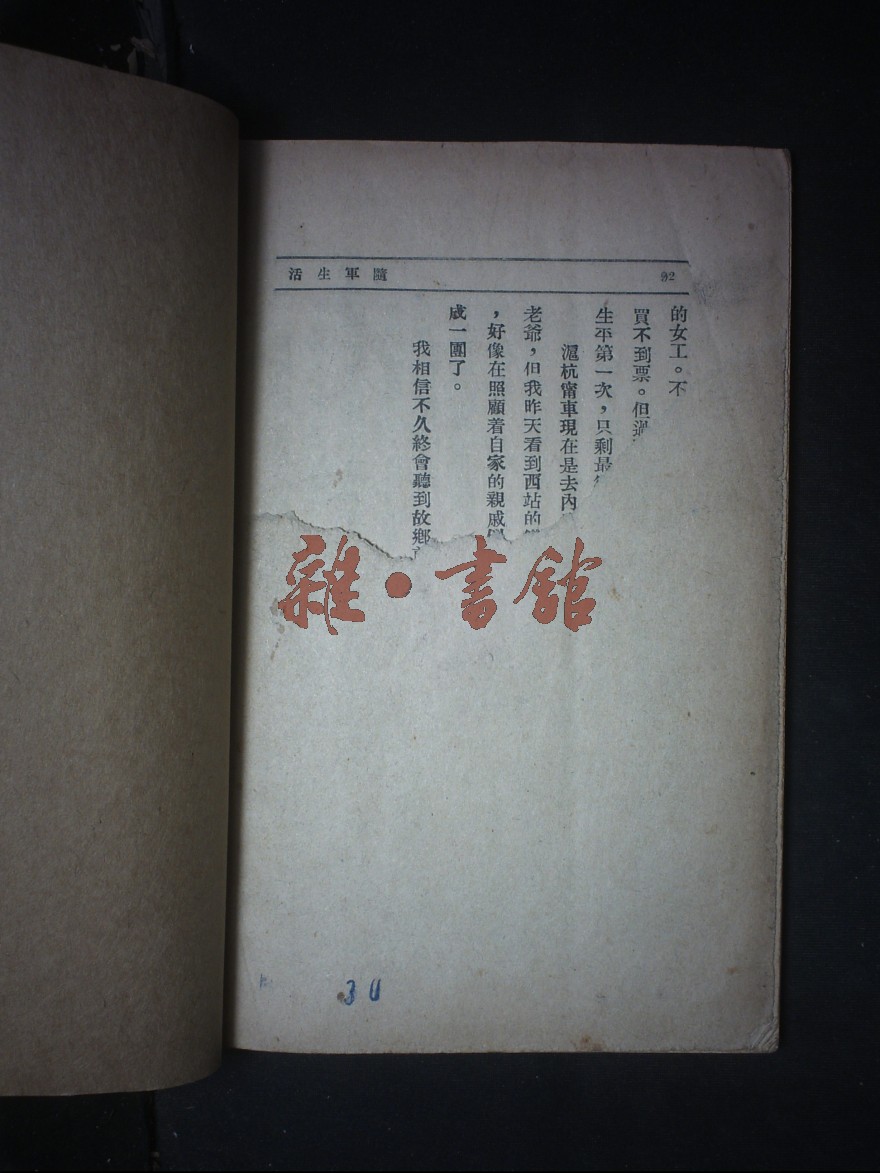 隨軍生活
92
的女工。不
買不到票。但
生平第一次,只剩最
滬杭甯車現在是去內
老爺,但我昨天看到西站的
,好像在照顧着自家的親戚
成一團了。
我相信不久終會聽到故鄉
雜·書館
30